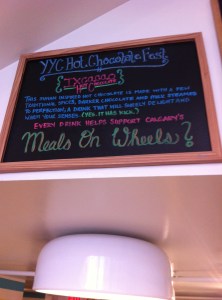 YYC Hot Chocolate Fest
{IXCacao}
This Mayan inspired hot chocolate is made with a few
traditional spices, darker chocolate and milk steamed
to perfection, a drink that will surely delight and
warm your senses. (Yes, it has kick.)
Every drink helps support Calgary's
Meals On Wheels